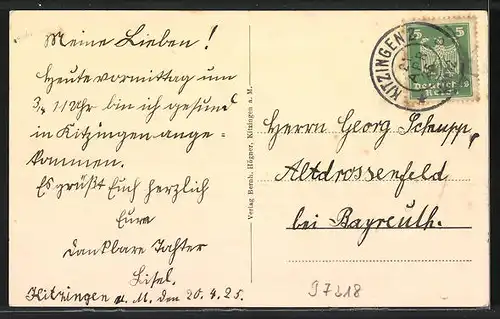 Meine Lieben!
Heutevormittag um
3/4 11 Uhr bin ich gesund
in Kitzingen ange-
kommen.
Es grüßt Euch herzlich
Eure
dankbare Tochter
Lisel.
Kitzingen a. M. den 20.4.25.
Verlag Bernh. Högner, Kitzingen a. M.
KITZINGEN
5 5
DEUTSCHES
REICH
Herrn Georg Schupp,
Altdrossenfeld
bei Bayreuth.
97218